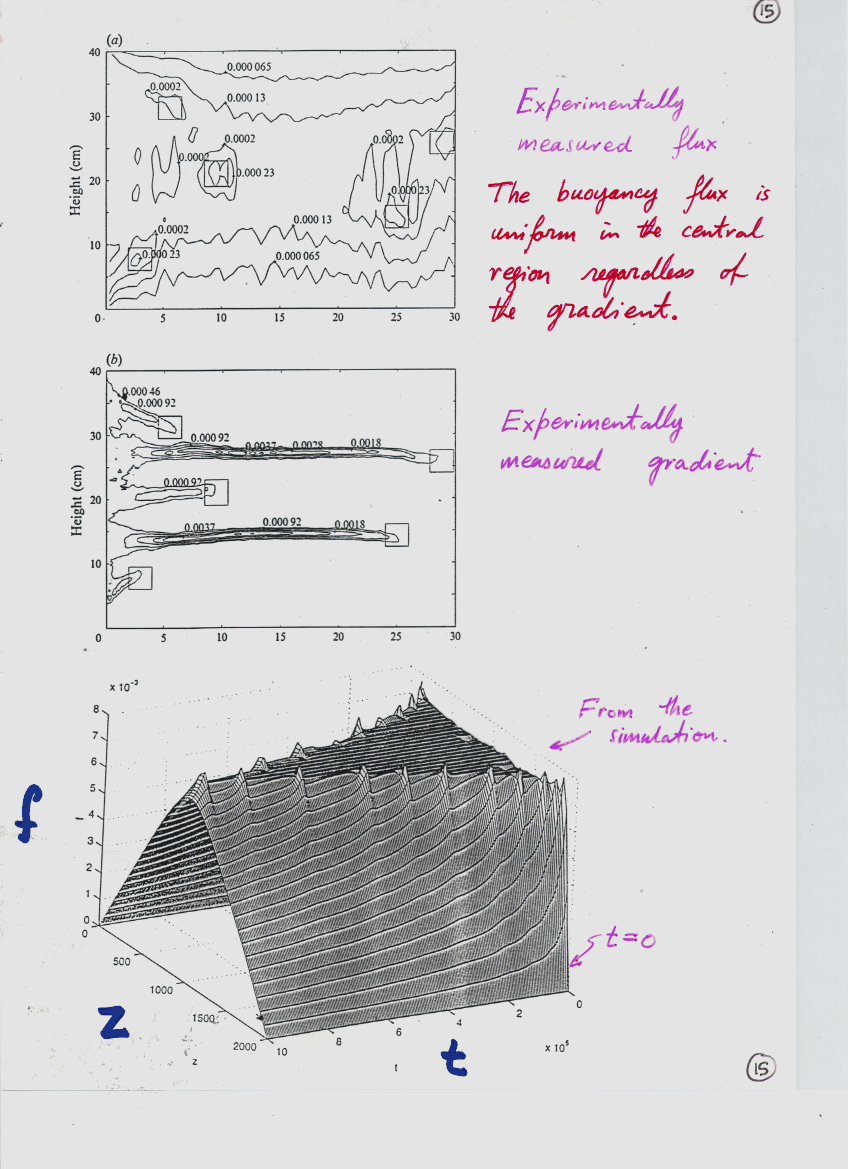 15
(a)
40
30
20
10
0
Height (cm)
0.000 065
0.0002
0.000 13
0.0002
0.0002
0.0002
0.000 23
0.000 23
0.000 13
0.0002
0.000 23
0.000 065
5
10
15
20
25
30
Experimentally
measured flux
The buoyancy flux is
uniform in the central
region regardless of
the gradient.
(b)
40
30
20
10
0
Height (cm)
0.000 46
0.000 92
0.000 92
0.0037
0.0028
0.0018
0.000 92
0.0037
0.000 92
0.0018
5
10
15
20
25
30
Experimentally
measured gradient
From the
simulation.
x 10⁻³
8
7
6
5
4
3
2
1
0
f
0
500
1000
1500
2000
z
z
10
8
6
4
2
0
x 10⁵
t
t
t=0
15